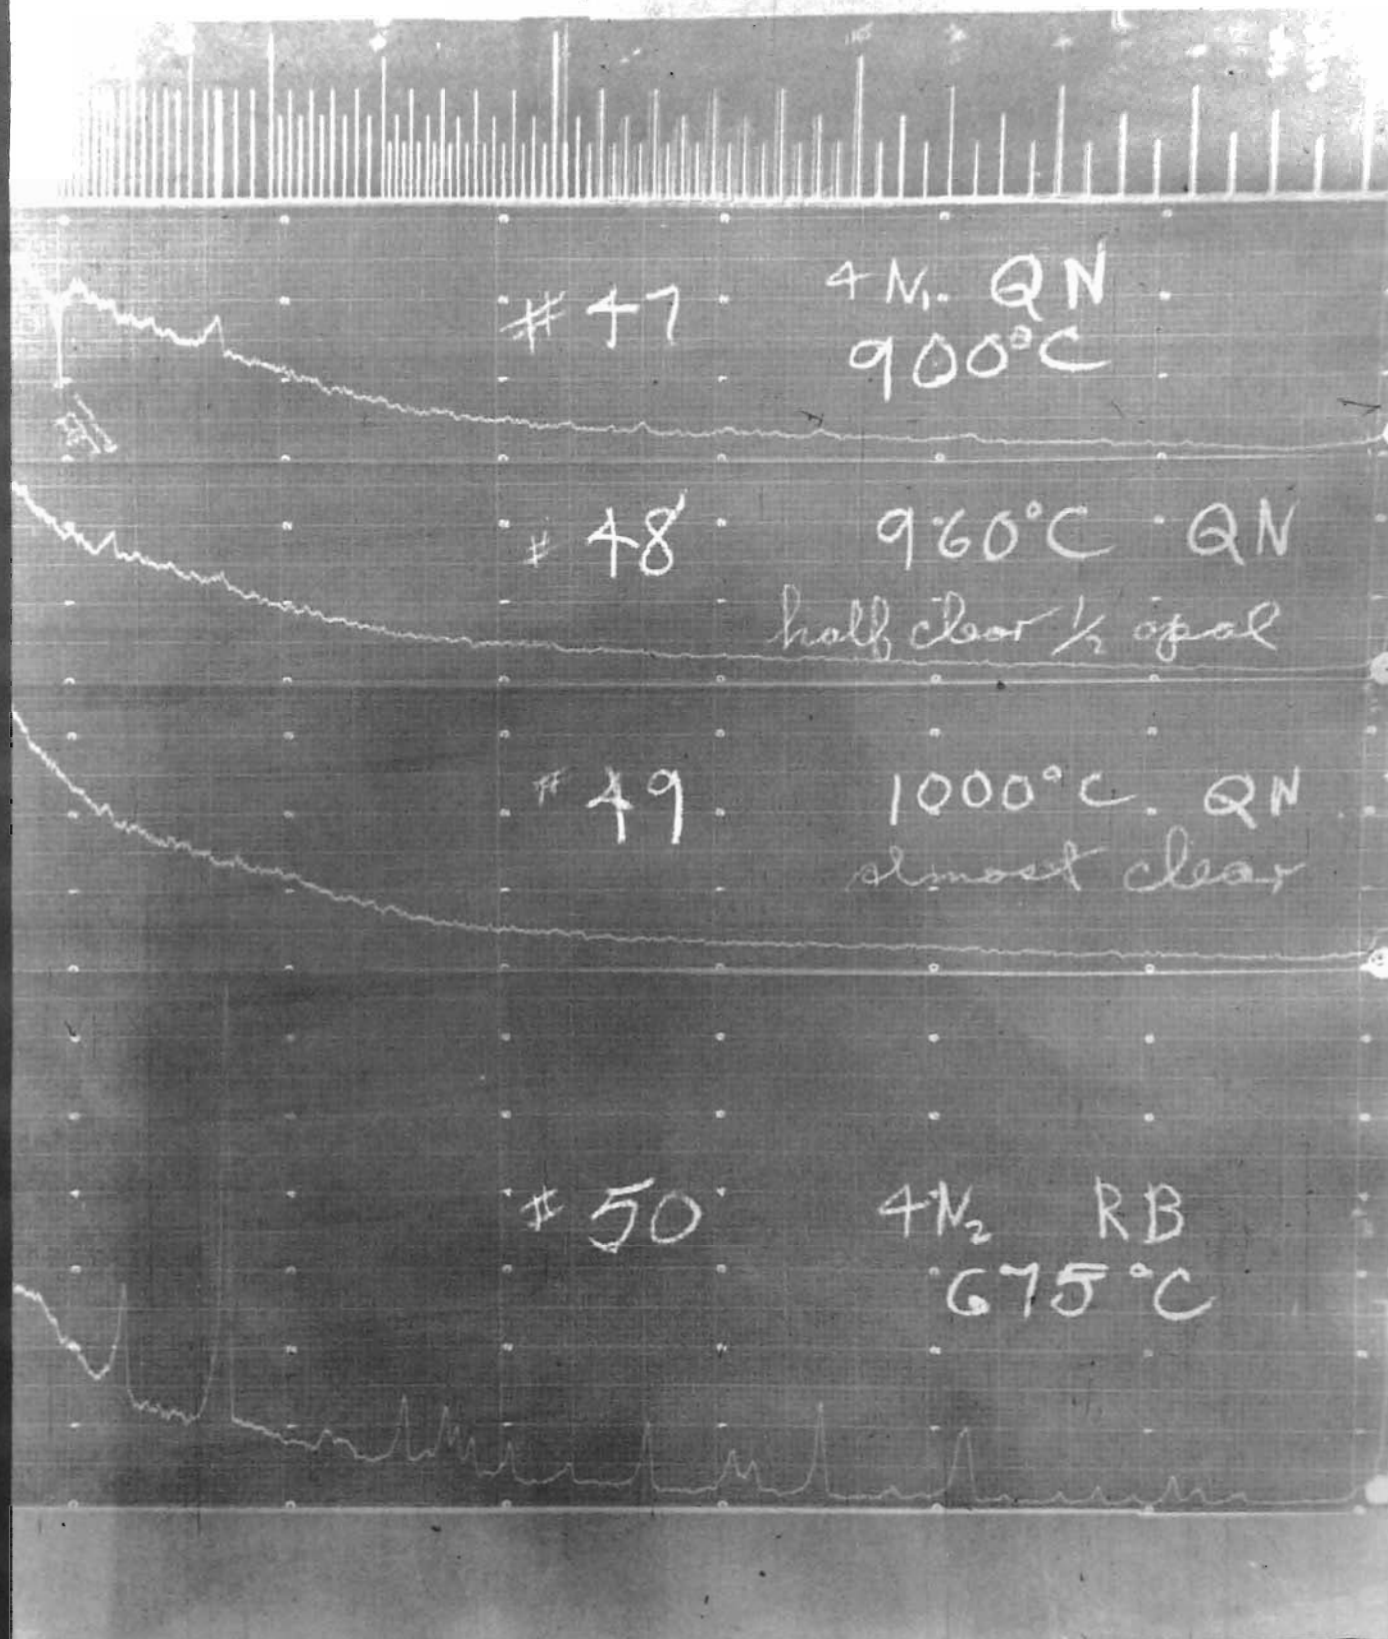 # 47 4N₁ QN
900°C
# 48 960°C QN
half clear ½ opal
# 49 1000°C QN
almost clear
# 50 4N₂ RB
675°C